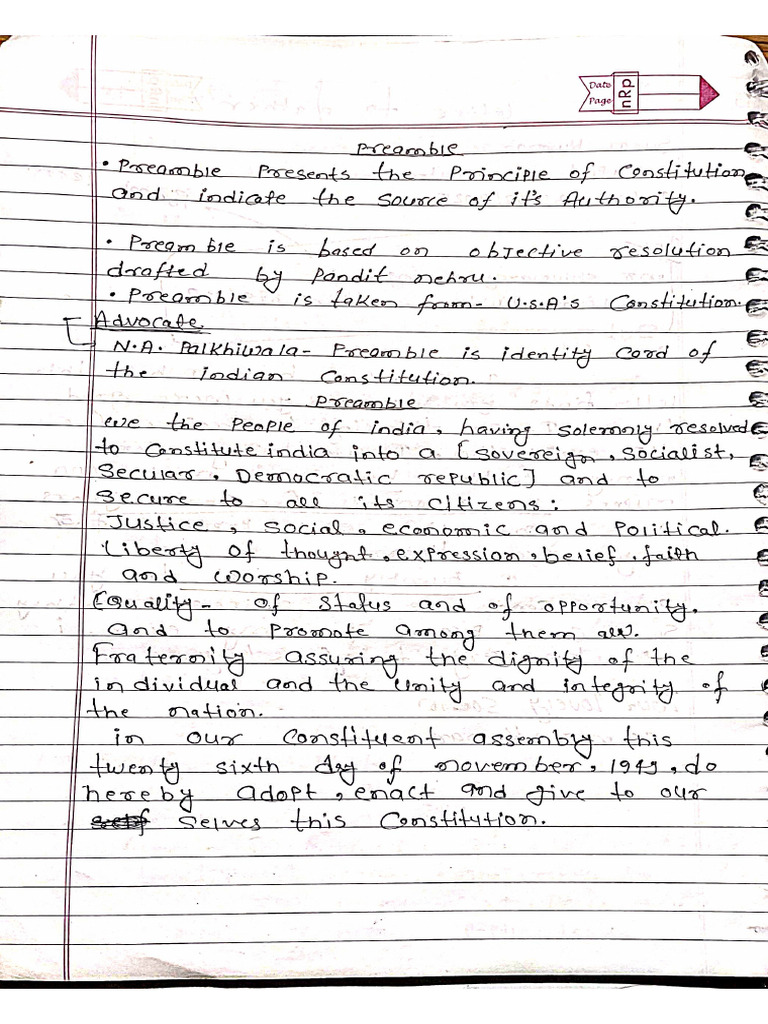 Date
Page
nRp
Preamble
• Preamble Presents the Principle of Constitution
and indicate the source of it's Authority.
• Preamble is based on objective resolution
drafted by Pandit nehru.
• Preamble is taken from- U.S.A's Constitution.
Advocate
N.A. Palkhiwala- Preamble is identity Card of
the indian Constitution.
Preamble
We the People of india, having solemnly resolved
to Constitute india into a [Sovereign, Socialist,
Secular, Democratic republic] and to
Secure to all its Citizens:
Justice, Social, economic and Political.
Liberty of thought, expression, belief, faith
and worship.
Equality- of Status and of opportunity.
and to Promote among them all.
Fraternity assuring the dignity of the
individual and the Unity and integrity of
the nation.
in our Constituent assembly this
twenty sixth day of november, 1949, do
hereby adopt, enact and give to our
selves this Constitution.